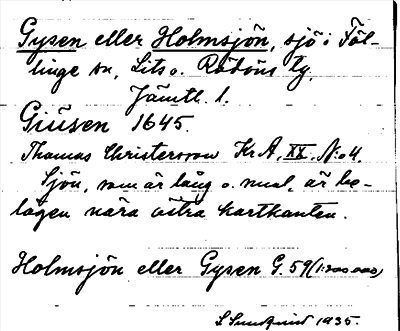 Gysen eller Holmsjön, sjö i Föl-
linge sn, Lits o. Rödöns tg.
Jämtl. l.
Giüsen 1645.
Thomas Christersson K.A. XX. N:o 4.
Sjön, som är lång o. smal, är be-
lägen nära östra kartkanten.
Holmsjön eller Gysen G. 59 (1:200000)
S. Sundqvist 1935.